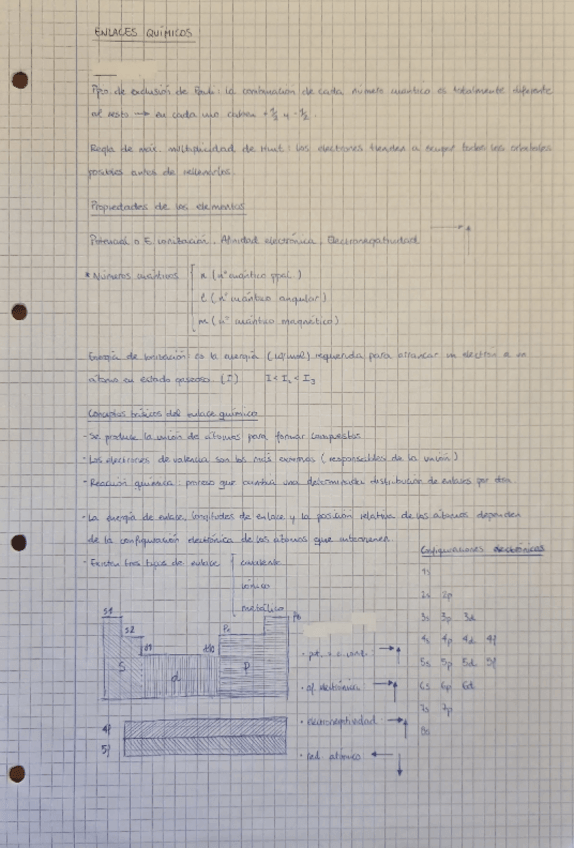 ENLACES QUÍMICOS
Ppo. de exclusión de Pauli: la combinación de cada número cuántico es totalmente diferente
al resto → en cada uno caben +½ y -½.
Regla de máx. multiplicidad de Hunt: los electrones tienden a ocupar todos los orbitales
posibles antes de rellenarlos.
Propiedades de los elementos
Potencial o E ionización, Afinidad electrónica, Electronegatividad
* Números cuánticos
n (nº cuántico ppal.)
l (nº cuántico angular)
m (nº cuántico magnético)
Energía de ionización: es la energía (kJ/mol) requerida para arrancar un electrón a un
átomo en estado gaseoso. (I) I < I₂ < I₃
Conceptos básicos del enlace químico
- Se produce la unión de átomos para formar compuestos
- Los electrones de valencia son los más externos (responsables de la unión)
- Reacción química: proceso que cambia una determinada distribución de enlaces por otra
- La energía de enlace, longitudes de enlace y la posición relativa de los átomos dependen
de la configuración electrónica de los átomos que intervienen.
- Existen tres tipos de enlace
covalente
iónico
metálico
Configuraciones electrónicas
1s
2s 2p
3s 3p 3d
4s 4p 4d 4f
5s 5p 5d 5f
6s 6p 6d
7s 7p
8s
S1
S2
d1
d10
P1
P6
S
d
P
4f
5f
• af. electrónica
• electronegatividad
• rad. atómico